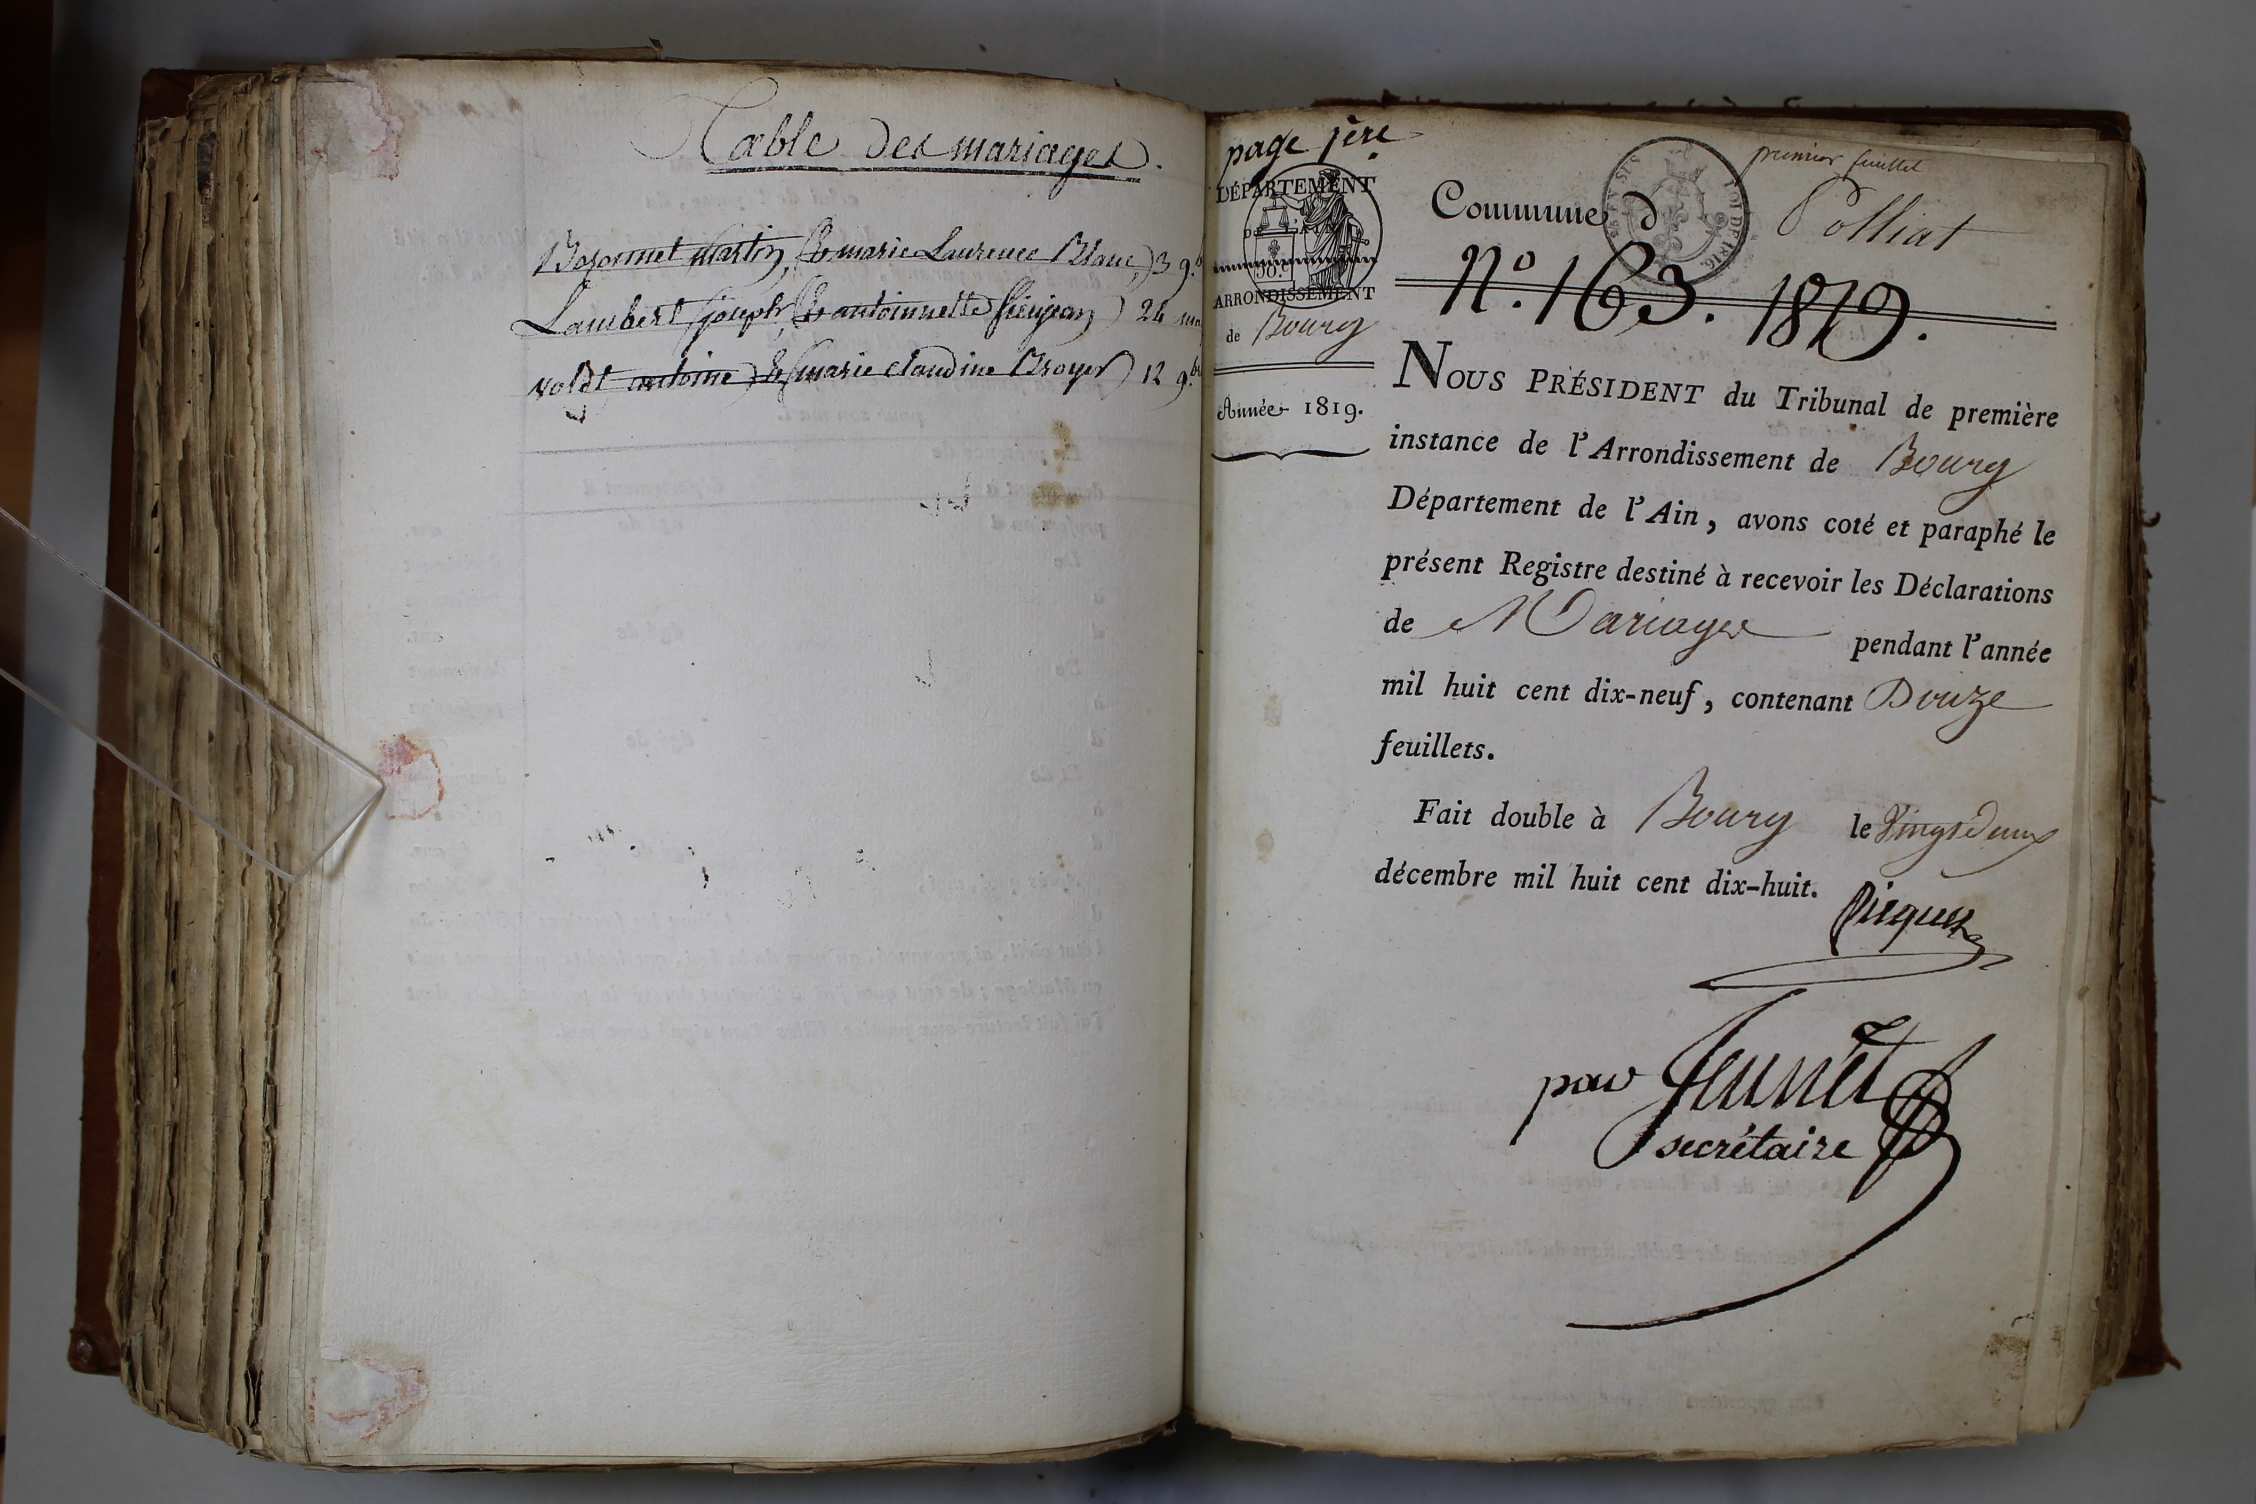 Table des mariages.
Bozonnet Martin, (& marie Laurence Blanc,) 3 9.b
Lambert joseph, (& antoinnette piénjean) 24 mai
antoine, (& marie claudine Broyer) 12 9.br
page 1ère
DÉPARTEMENT
DE L'AIN
ARRONDISSEMENT
de Bourg
Année 1819.
premier feuillet
Commune d Polliat
N.o 163. 1819.
NOUS PRÉSIDENT du Tribunal de première
instance de l'Arrondissement de Bourg
Département de l'Ain, avons coté et paraphé le
présent Registre destiné à recevoir les Déclarations
de Mariages pendant l'année
mil huit cent dix-neuf, contenant Douze
feuillets.
Fait double à Bourg le Vingt deux
décembre mil huit cent dix-huit.
Picquet
pour
secrétaire